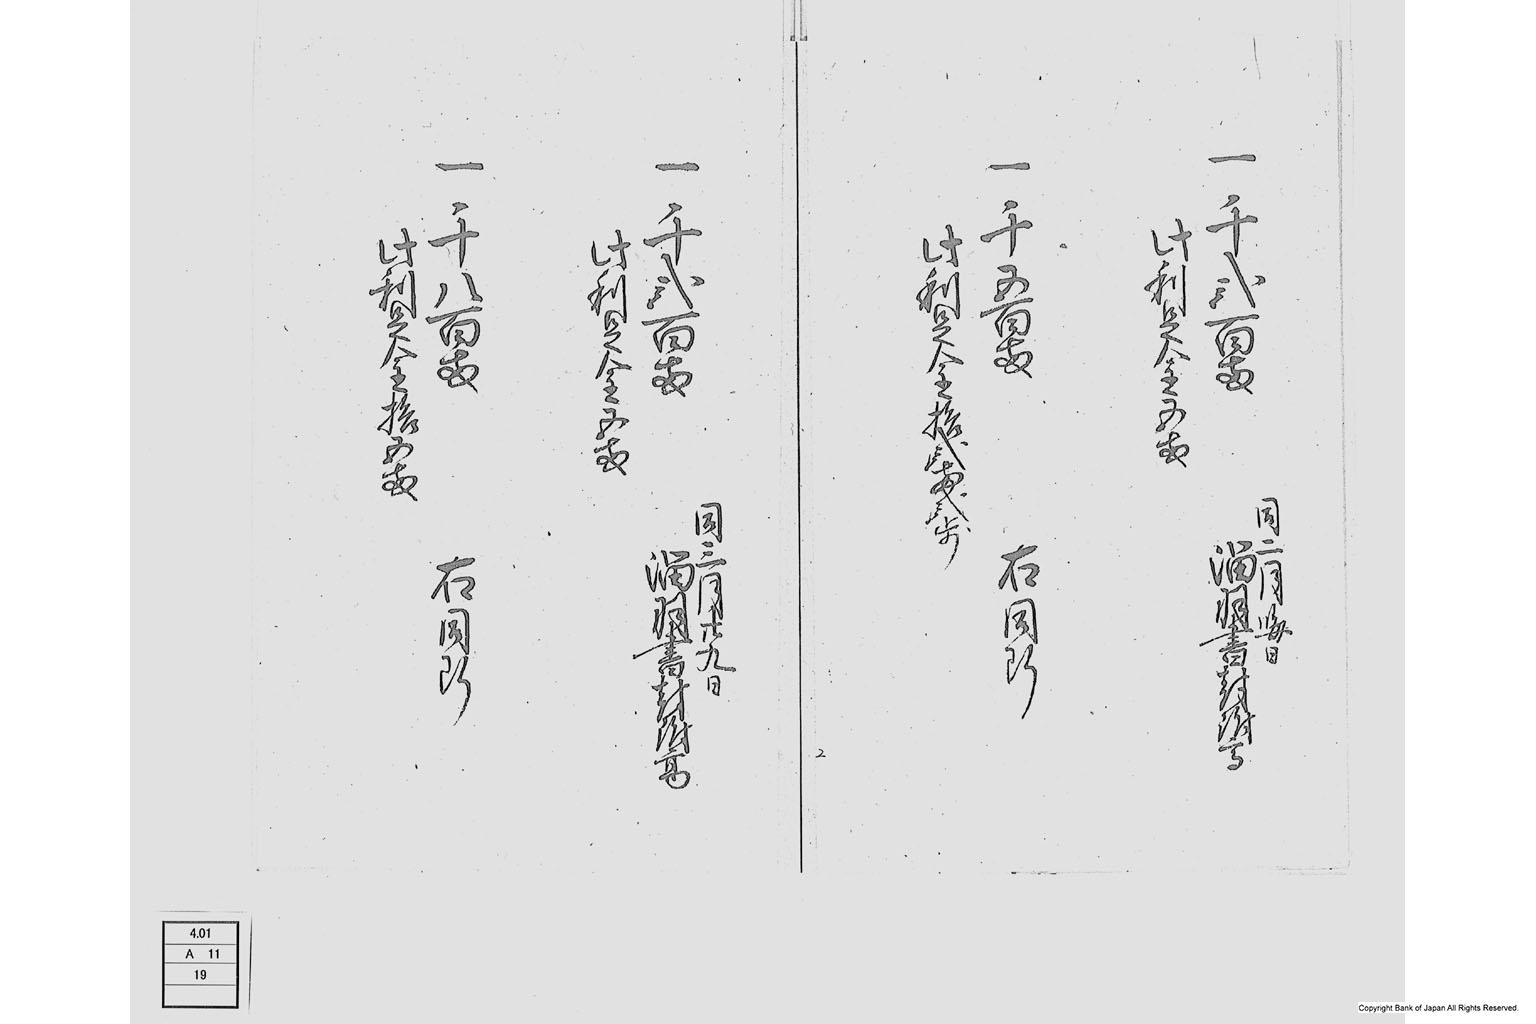 一千弐百両
此利足金五両
同二月晦日
溜明書封附高
一千五百両
此利足金拾弐両弐歩
右同断
2
一千弐百両
此利足金五両
同三月廿九日
溜明書封附高
一千八百両
此利足金拾五両
右同断
4.01
A 11
19
Copyright Bank of Japan All Rights Reserved.